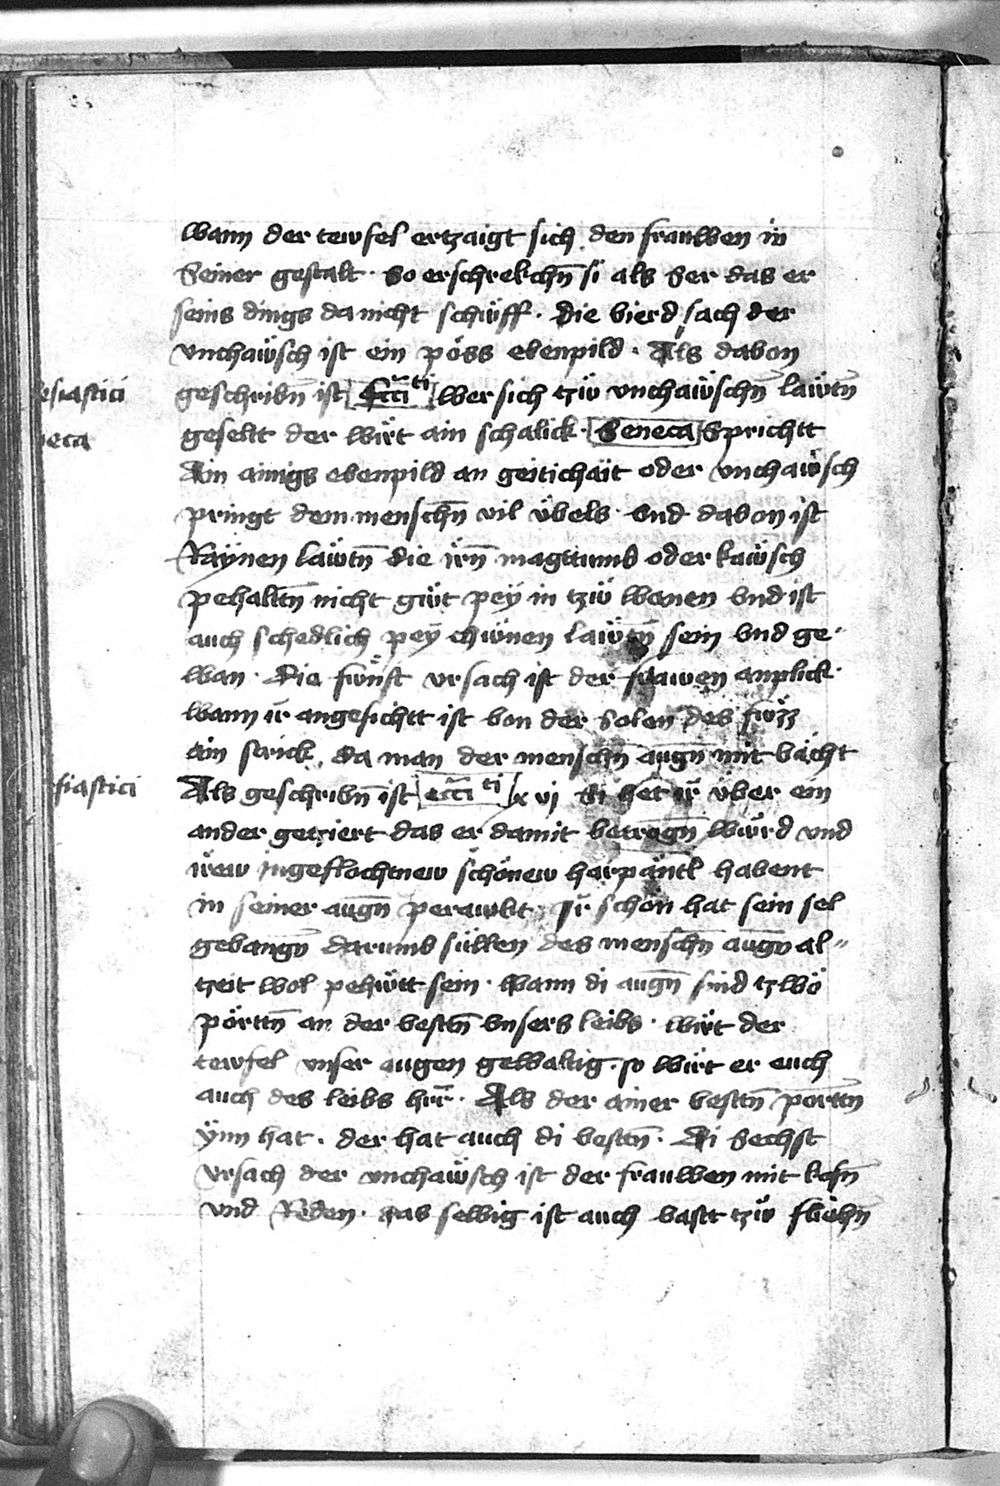 wann der tewfel ertzaigt sich den frauwen in
seiner gestalt · so erschrekchn̄ si als ser das er
seins dings da nicht schüff · die vierd sach der
vnchawsch ist ein pöss ebenpild · Als davon
esiastici
geschribn̄ ist Ecc̄i ti wer sich tzw̋ vnchaẅschn̄ laẅtn̄
neca
geselt der wirt ain schalick · Seneca Sprichtt
Ain ainigs ebenpild an geitichäit oder vnchaẅsch
pringt dem menschn̄ vil übels · vnd davon ist
Raÿnen laẅtn̄ die irn̄ magttumb oder kaẅsch
pehaltn̄ nicht güt peÿ in tzẅ wonen vnd ist
auch schedlich peÿ chẅnen laẅtn̄ sein vnd ge-
wan · die fẅnft vrsach ist der frawen anplick ·
wann ir̄ angesichtt ist von der solen des fẅzz
ain strick , da man der menschn̄ augn̄ mit vächt
siastici
Als geschribn̄ ist ecc̄i ti xvj si het ir̄ über ein
ander getziert das er damit betrogn̄ würd vnd
irew ingeflochtnew schönew harpäntl habent
in seiner augn̄ perawbt · Ir̄ schön hat sein sel
gevangn̄ darumb süllen des menschn̄ augn̄ al-
tzeit wol pehütt sein · wann di augn̄ sind tzwo
pörttn̄ an der vestn̄ vnsers leibs · wirt der
tewfel vnser augen gewaltig · so wirt er euch
auch des leibs hrr̄ · Als der ainer vestn̄ porttn̄
ÿnn hat · der hat auch di vestn̄ · Di sechst
vrsach der vnchaẅsch ist der frauwen mit kosn̄
vnd Reden · das selbig ist auch vastt tzẅ fliehn̄